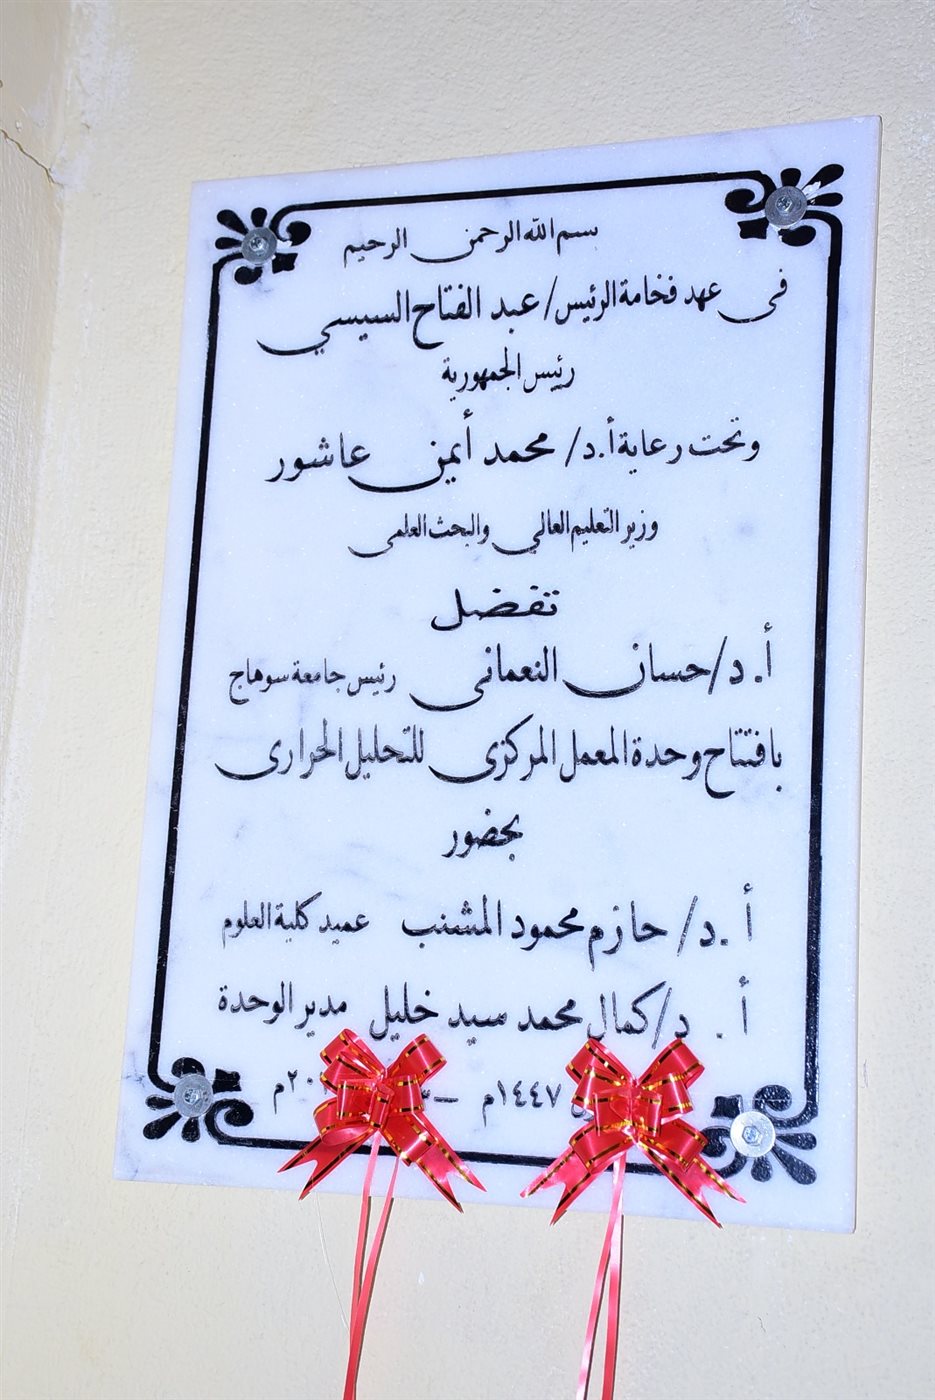 بسم الله الرحمن الرحيم
فى عهد فخامة الرئيس/ عبد الفتاح السيسي
رئيس الجمهورية
وتحت رعاية أ.د/ محمد أيمن عاشور
وزير التعليم العالي والبحث العلمى
تفضل
أ.د/حسان النعمانى رئيس جامعة سوهاج
بافتتاح وحدة المعمل المركزى للتحليل الحرارى
بحضور
أ.د/ حازم محمود المشنب عميد كلية العلوم
أ.د/كمال محمد سيد خليل مدير الوحدة
١٤٤٧م –